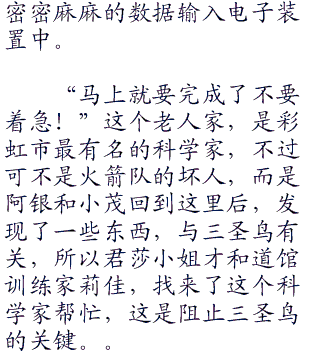 密密麻麻的数据输入电子装
置中。
“马上就要完成了不要
着急！”这个老人家，是彩
虹市最有名的科学家，不过
可不是火箭队的坏人，而是
阿银和小茂回到这里后，发
现了一些东西，与三圣鸟有
关，所以君莎小姐才和道馆
训练家莉佳，找来了这个科
学家帮忙，这是阻止三圣鸟
的关键。。